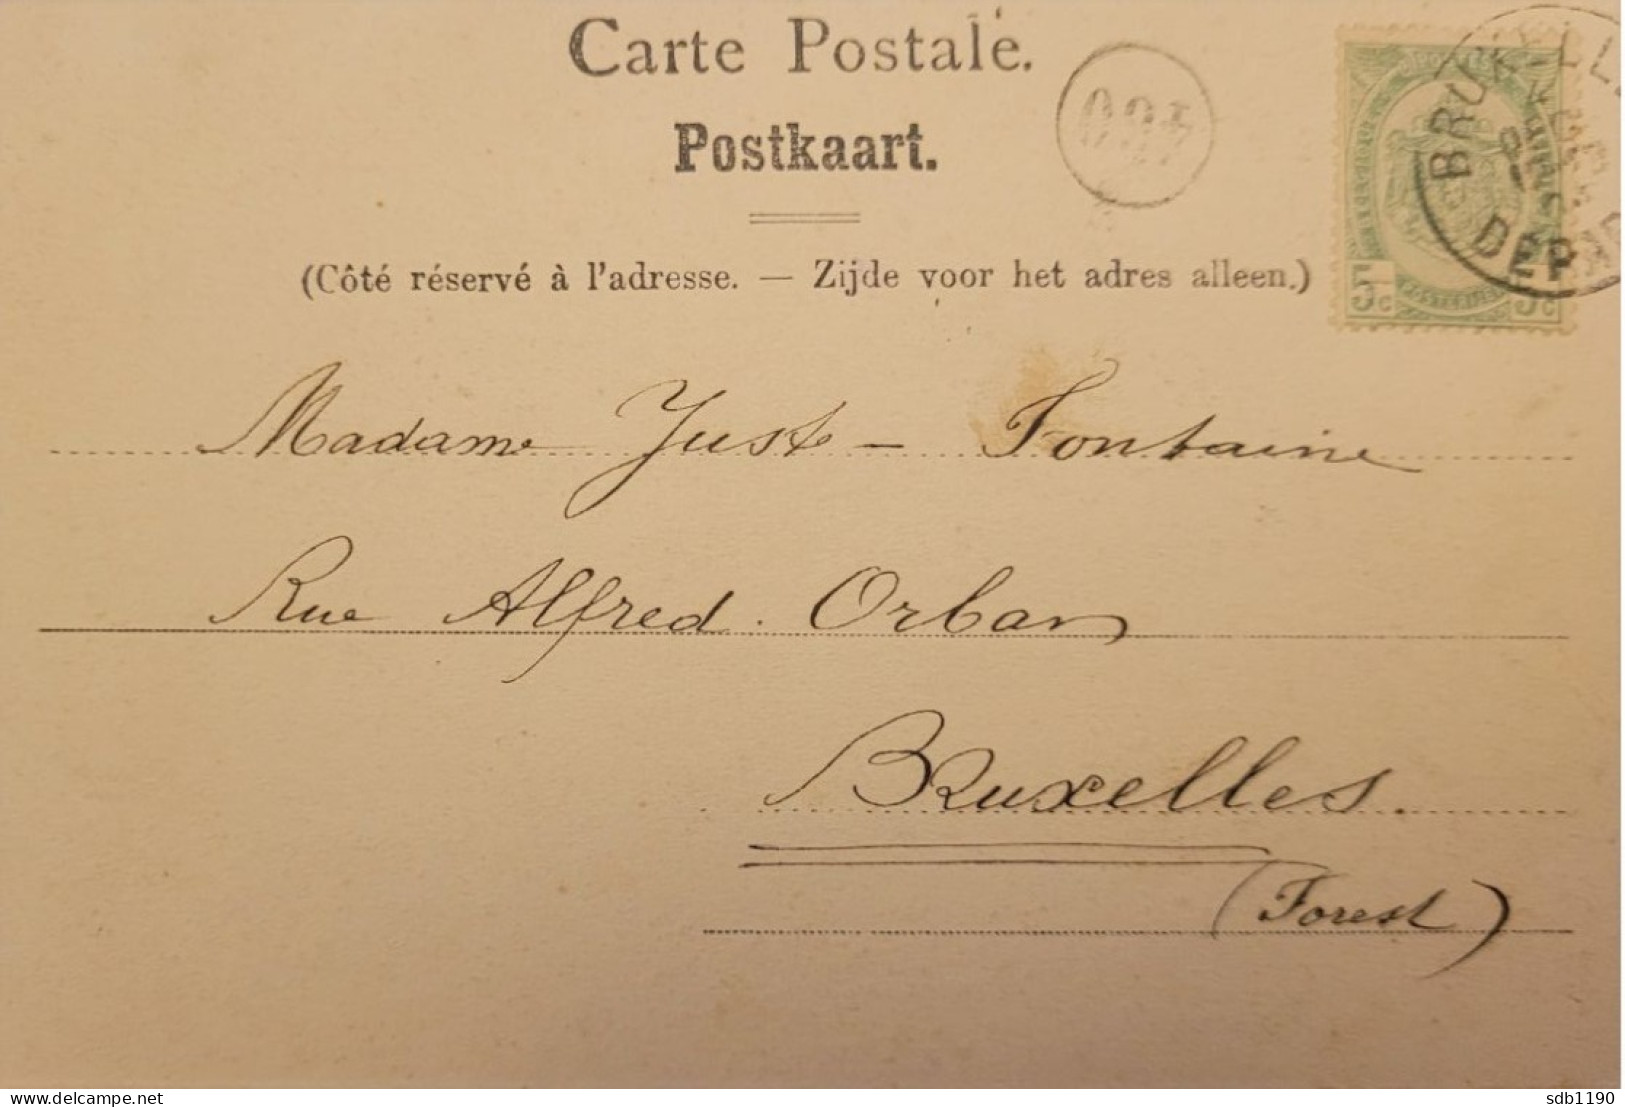 Carte Postale.
Postkaart.
(Côté réservé à l'adresse. — Zijde voor het adres alleen.)
5c 5c
DEPA
Madame Just - Fontaine
Rue Alfred. Orban
Bruxelles.
(Forest)
delcampe.net
sdb1190